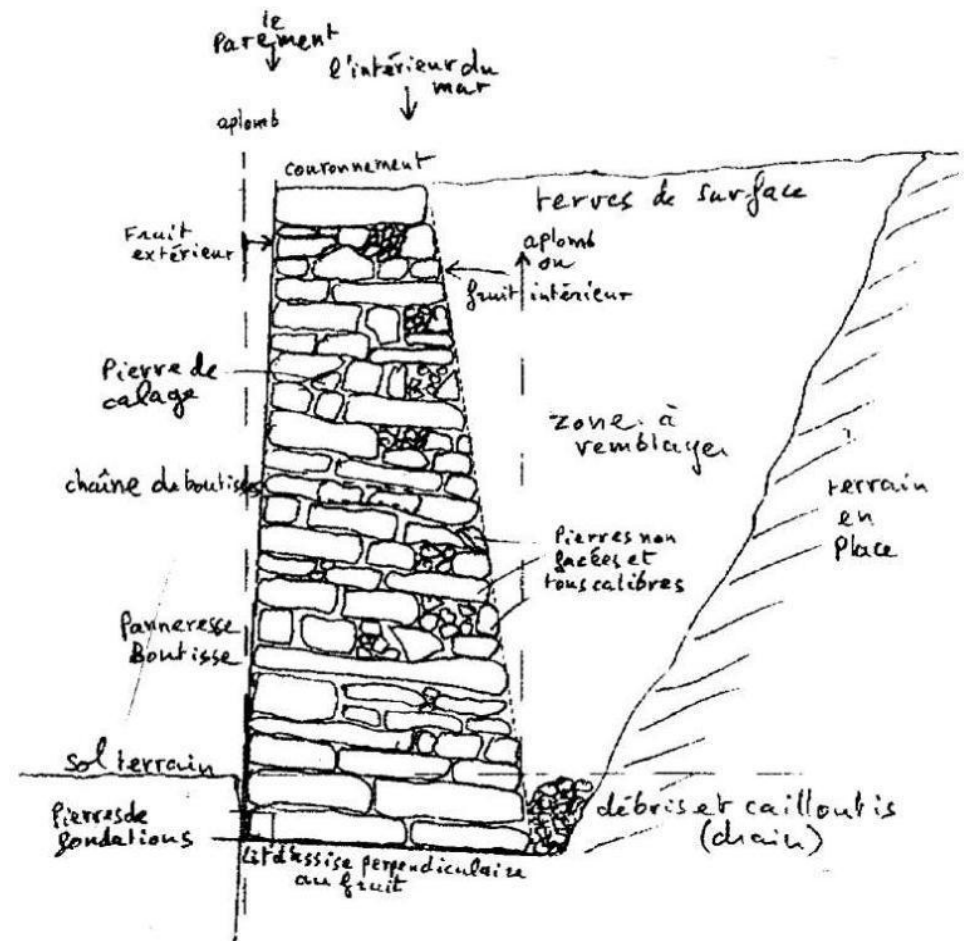 le
Parement
l'intérieur du
mur
aplomb
couronnement
terres de surface
Fruit
extérieur
aplomb
ou
fruit intérieur
Pierre de
calage
zone à
remblayer
chaîne de boutisses
terrain
en
Place
Pierres non
gacées et
tous calibres
Panneresse
Boutisse
sol terrain
Pierres de
fondations
débris et cailloutis
(drain)
Lit d'assise perpendiculaire
au fruit